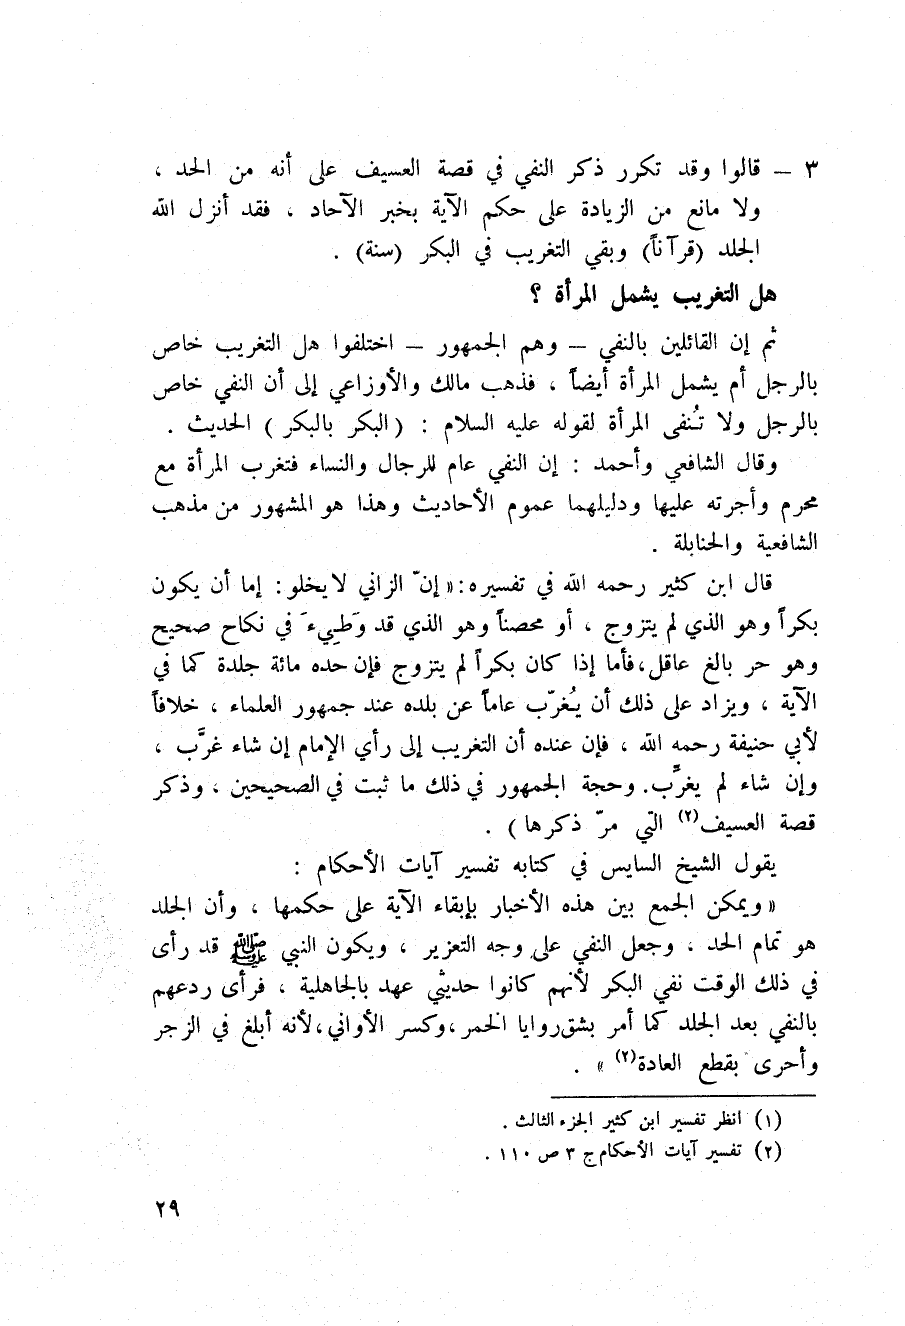 ٣ – قالوا وقد تكرر ذكر النفي في قصة العسيف على أنه من الحد ،
ولا مانع من الزيادة على حكم الآية بخبر الآحاد ، فقد أنزل الله
الجلد (قرآناً) وبقي التغريب في البكر (سنة) .
هل التغريب يشمل المرأة ؟
ثم إن القائلين بالنفي – وهم الجمهور – اختلفوا هل التغريب خاص
بالرجل أم يشمل المرأة أيضاً ، فذهب مالك والأوزاعي إلى أن النفي خاص
بالرجل ولا تُنفى المرأة لقوله عليه السلام : (البكر بالبكر) الحديث .
وقال الشافعي وأحمد : إن النفي عام للرجال والنساء فتغرب المرأة مع
محرم وأجرته عليها ودليلهما عموم الأحاديث وهذا هو المشهور من مذهب
الشافعية والحنابلة .
قال ابن كثير رحمه الله في تفسيره:« إنّ الزاني لا يخلو : إما أن يكون
بكراً وهو الذي لم يتزوج ، أو محصناً وهو الذي قد وَطِيءَ في نكاح صحيح
وهو حر بالغ عاقل،فأما إذا كان بكراً لم يتزوج فإن حده مائة جلدة كما في
الآية ، ويزاد على ذلك أن يُغرّب عاماً عن بلده عند جمهور العلماء ، خلافاً
لأبي حنيفة رحمه الله ، فإن عنده أن التغريب إلى رأي الإمام إن شاء غرَّب ،
وإن شاء لم يغرِّب. وحجة الجمهور في ذلك ما ثبت في الصحيحين ، وذكر
قصة العسيف(٢) التي مرّ ذكرها ) .
يقول الشيخ السايس في كتابه تفسير آيات الأحكام :
« ويمكن الجمع بين هذه الأخبار بإبقاء الآية على حكمها ، وأن الجلد
هو تمام الحد ، وجعل النفي على وجه التعزير ، ويكون النبي ﷺ قد رأى
في ذلك الوقت نفي البكر لأنهم كانوا حديثي عهد بالجاهلية ، فرأى ردعهم
بالنفي بعد الجلد كما أمر بشق روايا الخمر ،وكسر الأواني ،لأنه أبلغ في الزجر
وأحرى بقطع العادة(٢) » .
(١) انظر تفسير ابن كثير الجزء الثالث .
(٢) تفسير آيات الأحكام ج ٣ ص ١١٠ .
٢٩